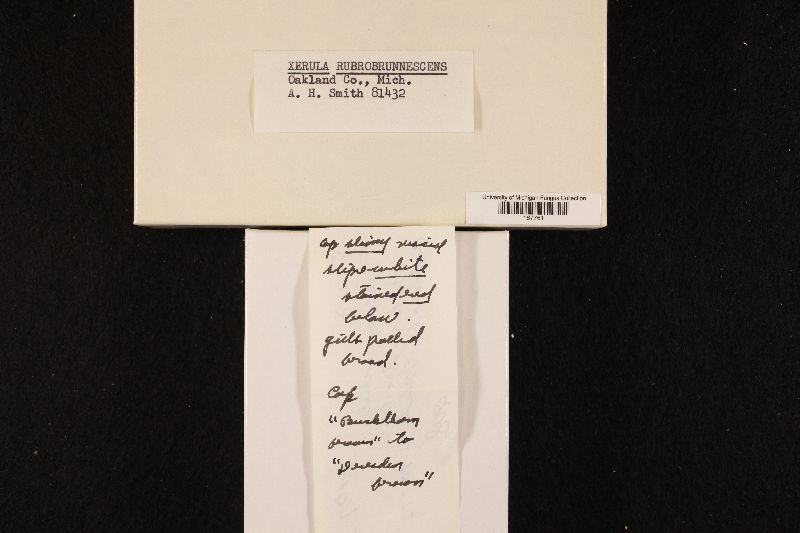 XERULA RUBROBRUNNESCENS
Oakland Co., Mich.
A. H. Smith 81432
University of Michigan Fungus Collection
cap slimy viscid
stipe white
stained red
below.
gills pallid
broad.
Cap
"Buckthorn
brown" to
"Dresden
brown"